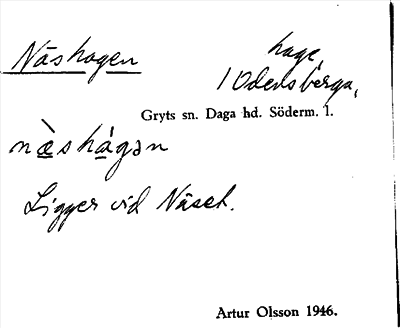 Näshagen
hage,
1 Odensberga,
Gryts sn. Daga hd. Söderm. l.
næ̀shágən
Ligger vid Näset.
Artur Olsson 1946.